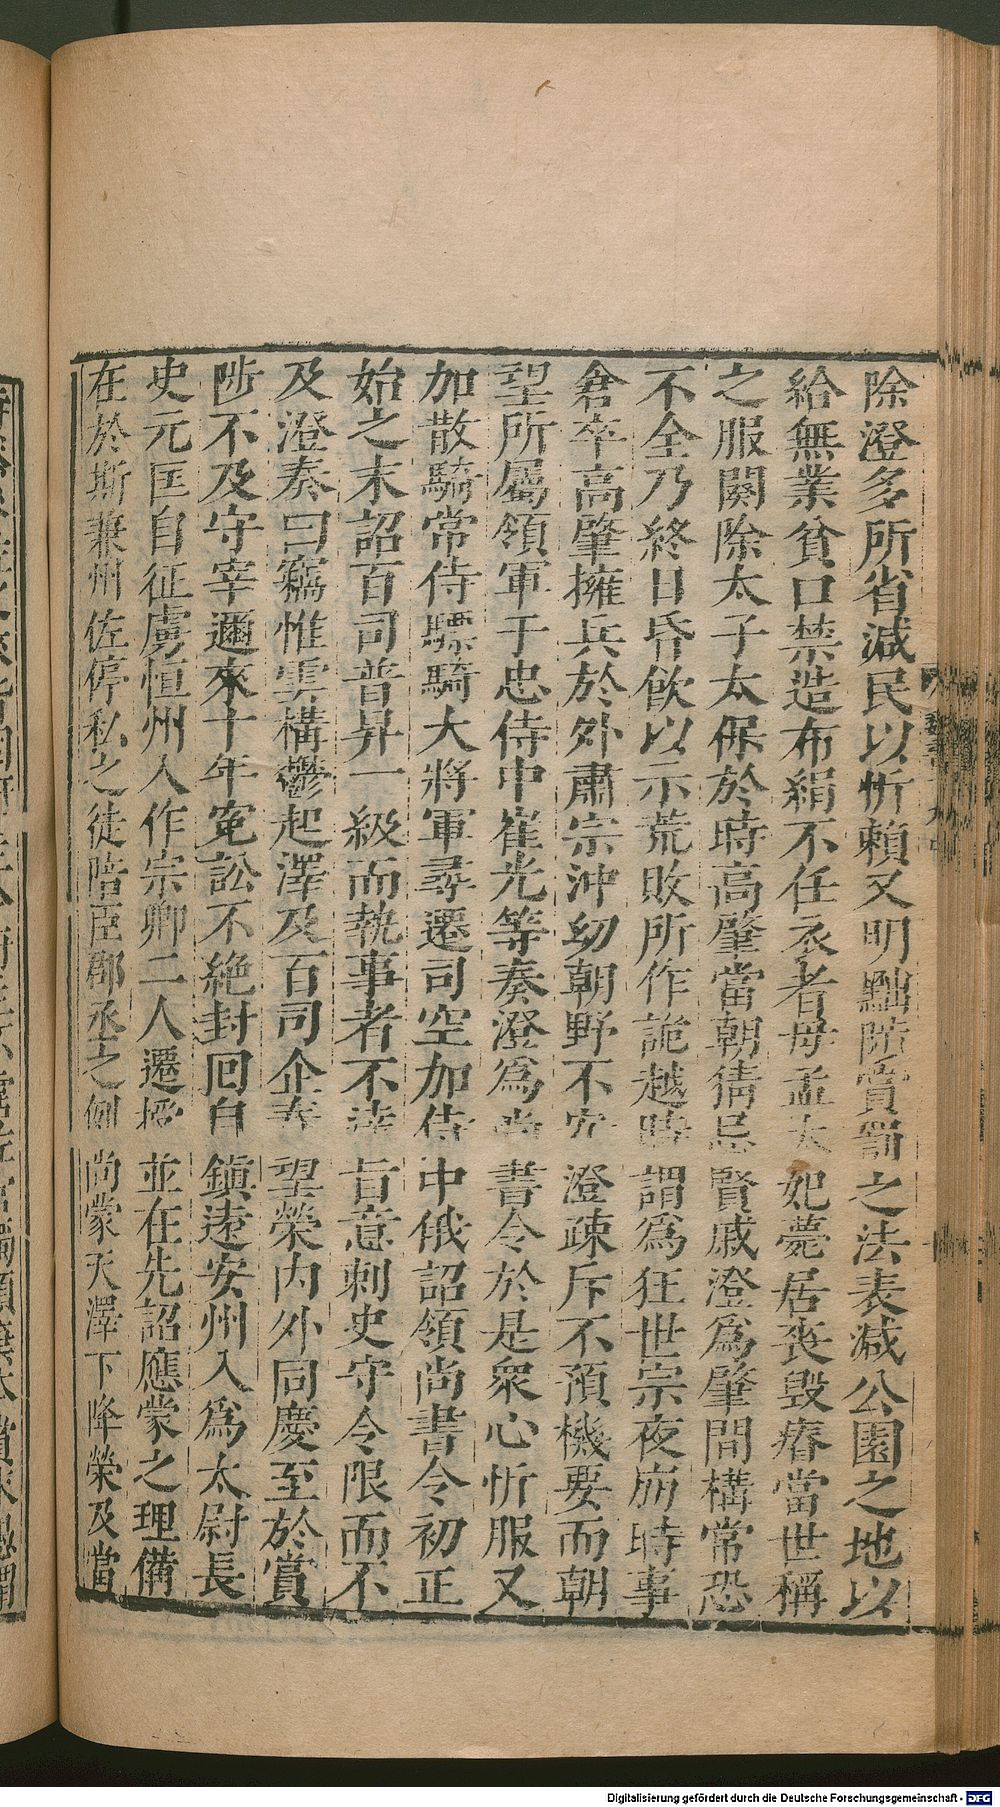 除澄多所省減民以忻賴又明黜陟賞罰之法表減公園之地以
給無業貧口禁造布絹不任衣者母孟太妃薨居喪毀瘠當世稱
之服闋除太子太保於時高肇當朝猜忌賢戚澄爲肇間構常恐
不全乃終日昏飲以示荒敗所作詭越時謂爲狂世宗夜崩時事
倉卒高肇擁兵於外肅宗沖幼朝野不安澄疎斥不預機要而朝
望所屬領軍于忠侍中崔光等奏澄爲尚書令於是衆心忻服又
加散騎常侍驃騎大將軍尋遷司空加侍中俄詔領尚書令初正
始之末詔百司普昇一級而執事者不達旨意刺史守令限而不
及澄奏曰竊惟雲構鬱起澤及百司企春望榮内外同慶至於賞
陟不及守宰邇來十年寃訟不絶封回自鎭遠安州入爲太尉長
史元匡自征虜恒州入作宗卿二人遷授並在先詔應蒙之理備
在於斯兼州佐停私之徒陪臣郡丞之例尚蒙天澤下降榮及當
Digitalisierung gefördert durch die Deutsche Forschungsgemeinschaft - DFG